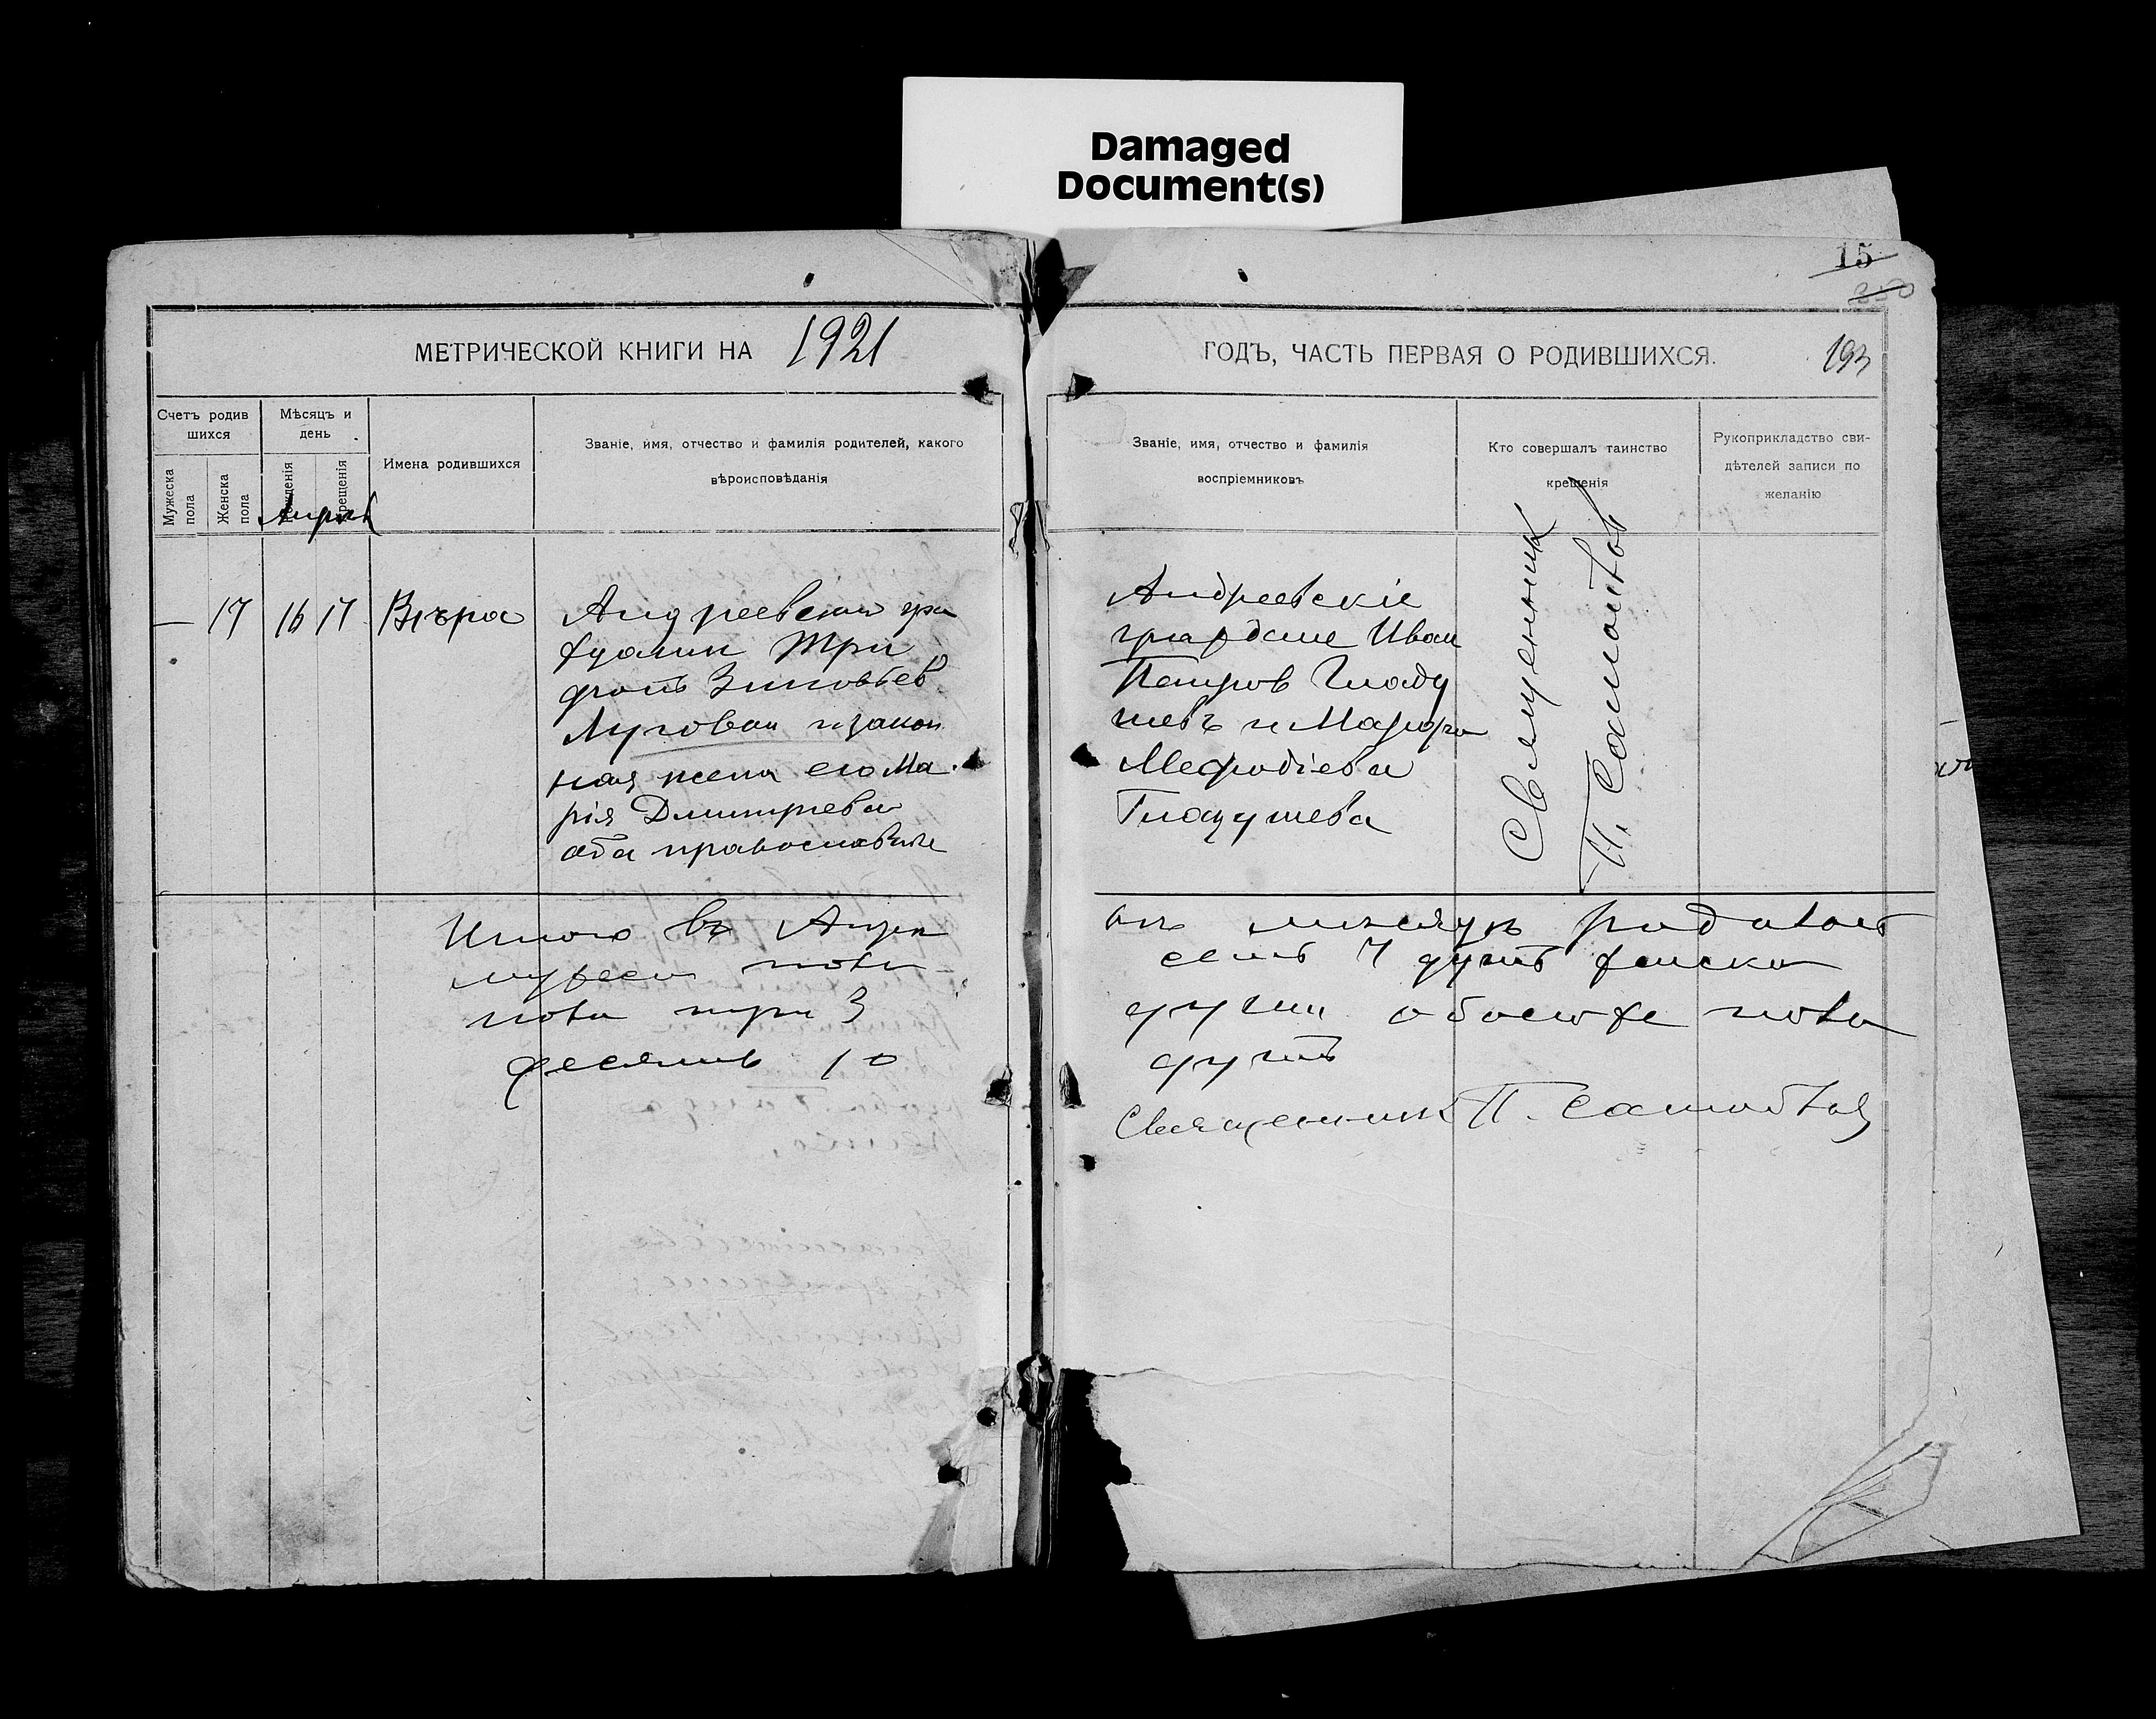 Damaged
Document(s)
15
193
МЕТРИЧЕСКОЙ КНИГИ НА 1921
ГОДЪ, ЧАСТЬ ПЕРВАЯ О РОДИВШИХСЯ.
Счетъ родив
шихся
Мужеска
пола
Женска
пола
Мѣсяцъ и
день
Рожденія
Крещенія
Апрѣль
Имена родившихся
Званіе, имя, отчество и фамилія родителей, какого
вѣроисповѣданія
Званіе, имя, отчество и фамилія
воспріемниковъ
Кто совершалъ таинство
крещенія
Рукоприкладство сви-
дѣтелей записи по
желанію
— 17 16 17 Вѣра
Андреевскій гра
жданин Три
фонъ Зиновьев
Луговой и закон
ная жена его Ма
рія Дмитриева
оба православные
Андреевскіе
граждане Иван
Петров Гладу
шевъ и Марфа
Мефодіева
Гладушева
Священник
П.
Итого въ Апрѣ
мужеска пола
пола три 3
десять 10
лѣ месяцѣ родилось
семь 7 душъ женска
души обоего же пола
душъ
Священник П.